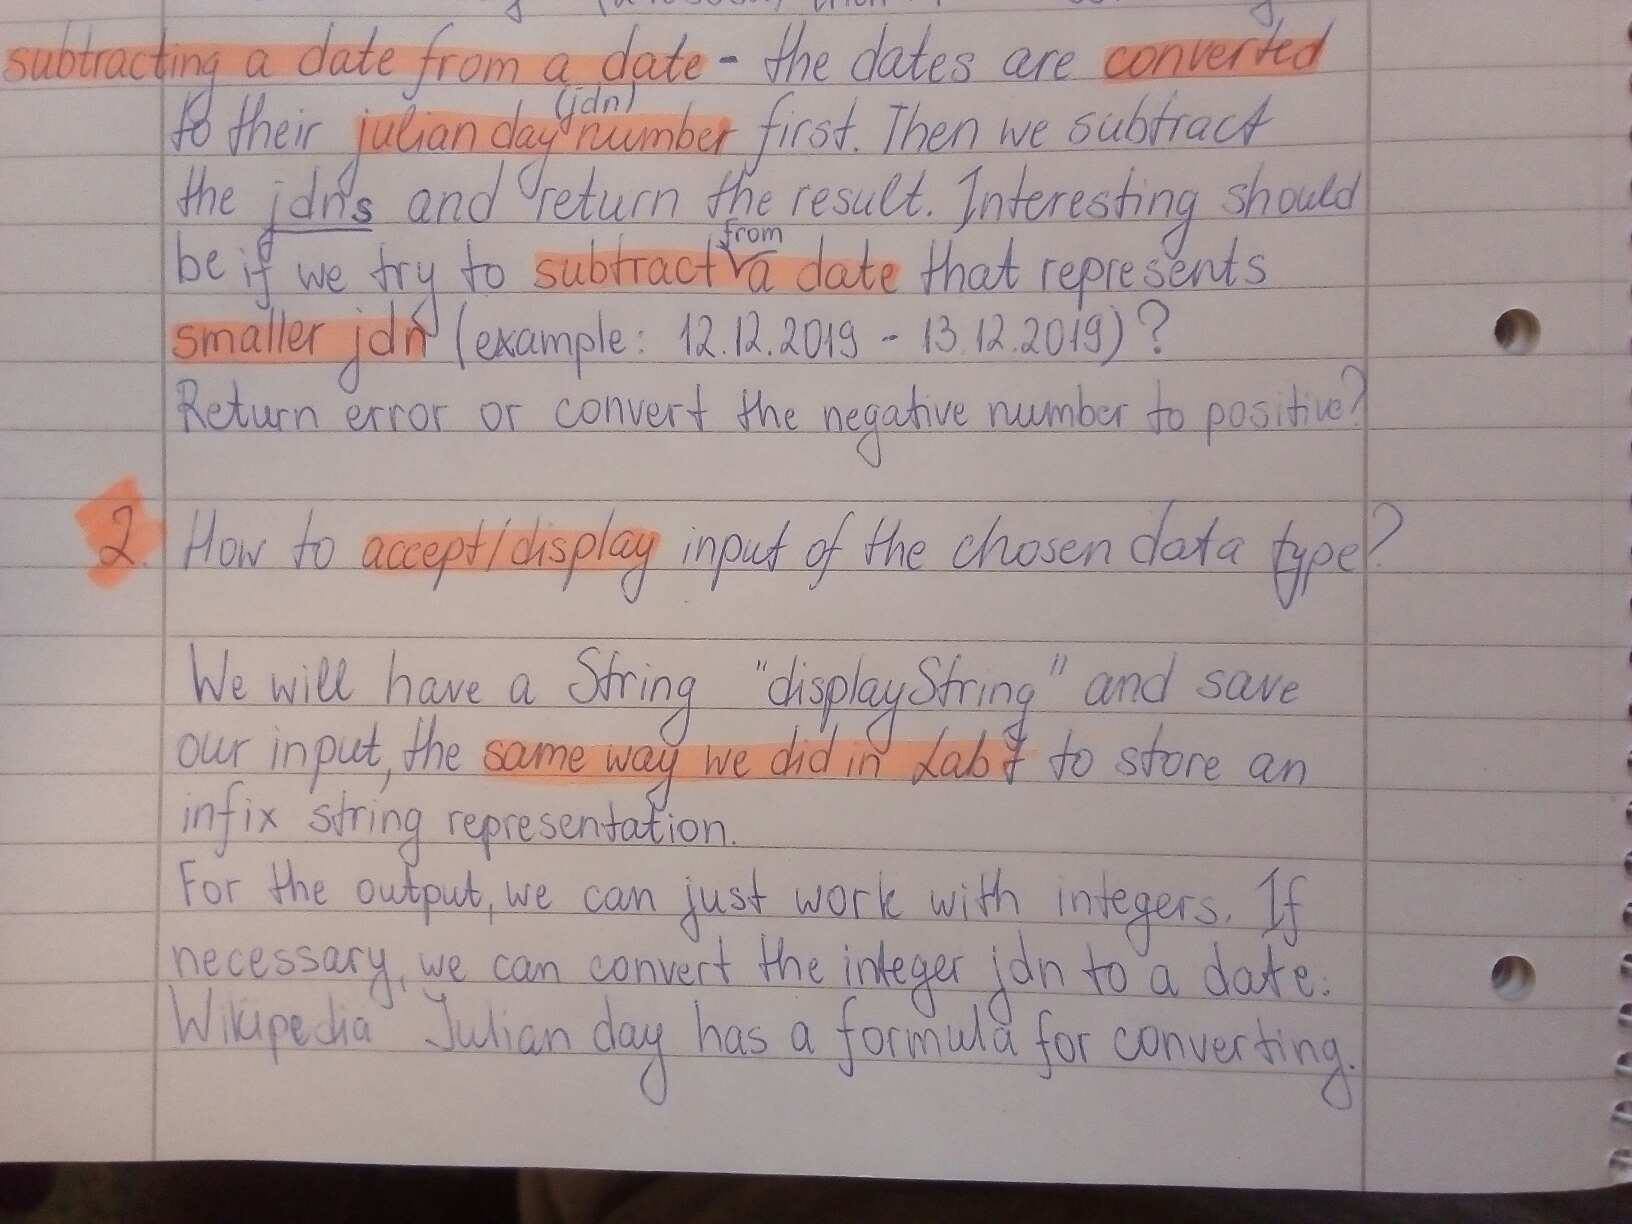 subtracting a date from a date - the dates are converted
to their julian day (jdn) number first. Then we subtract
the jdn's and return the result. Interesting should
be if we try to subtract from a date that represents
smaller jdn (example: 12.12.2019 - 13.12.2019)?
Return error or convert the negative number to positive?
2. How to accept/display input of the chosen data type?
We will have a String "displayString" and save
our input, the same way we did in Lab 7 to store an
infix string representation.
For the output, we can just work with integers. If
necessary, we can convert the integer jdn to a date.
Wikipedia Julian day has a formula for converting.